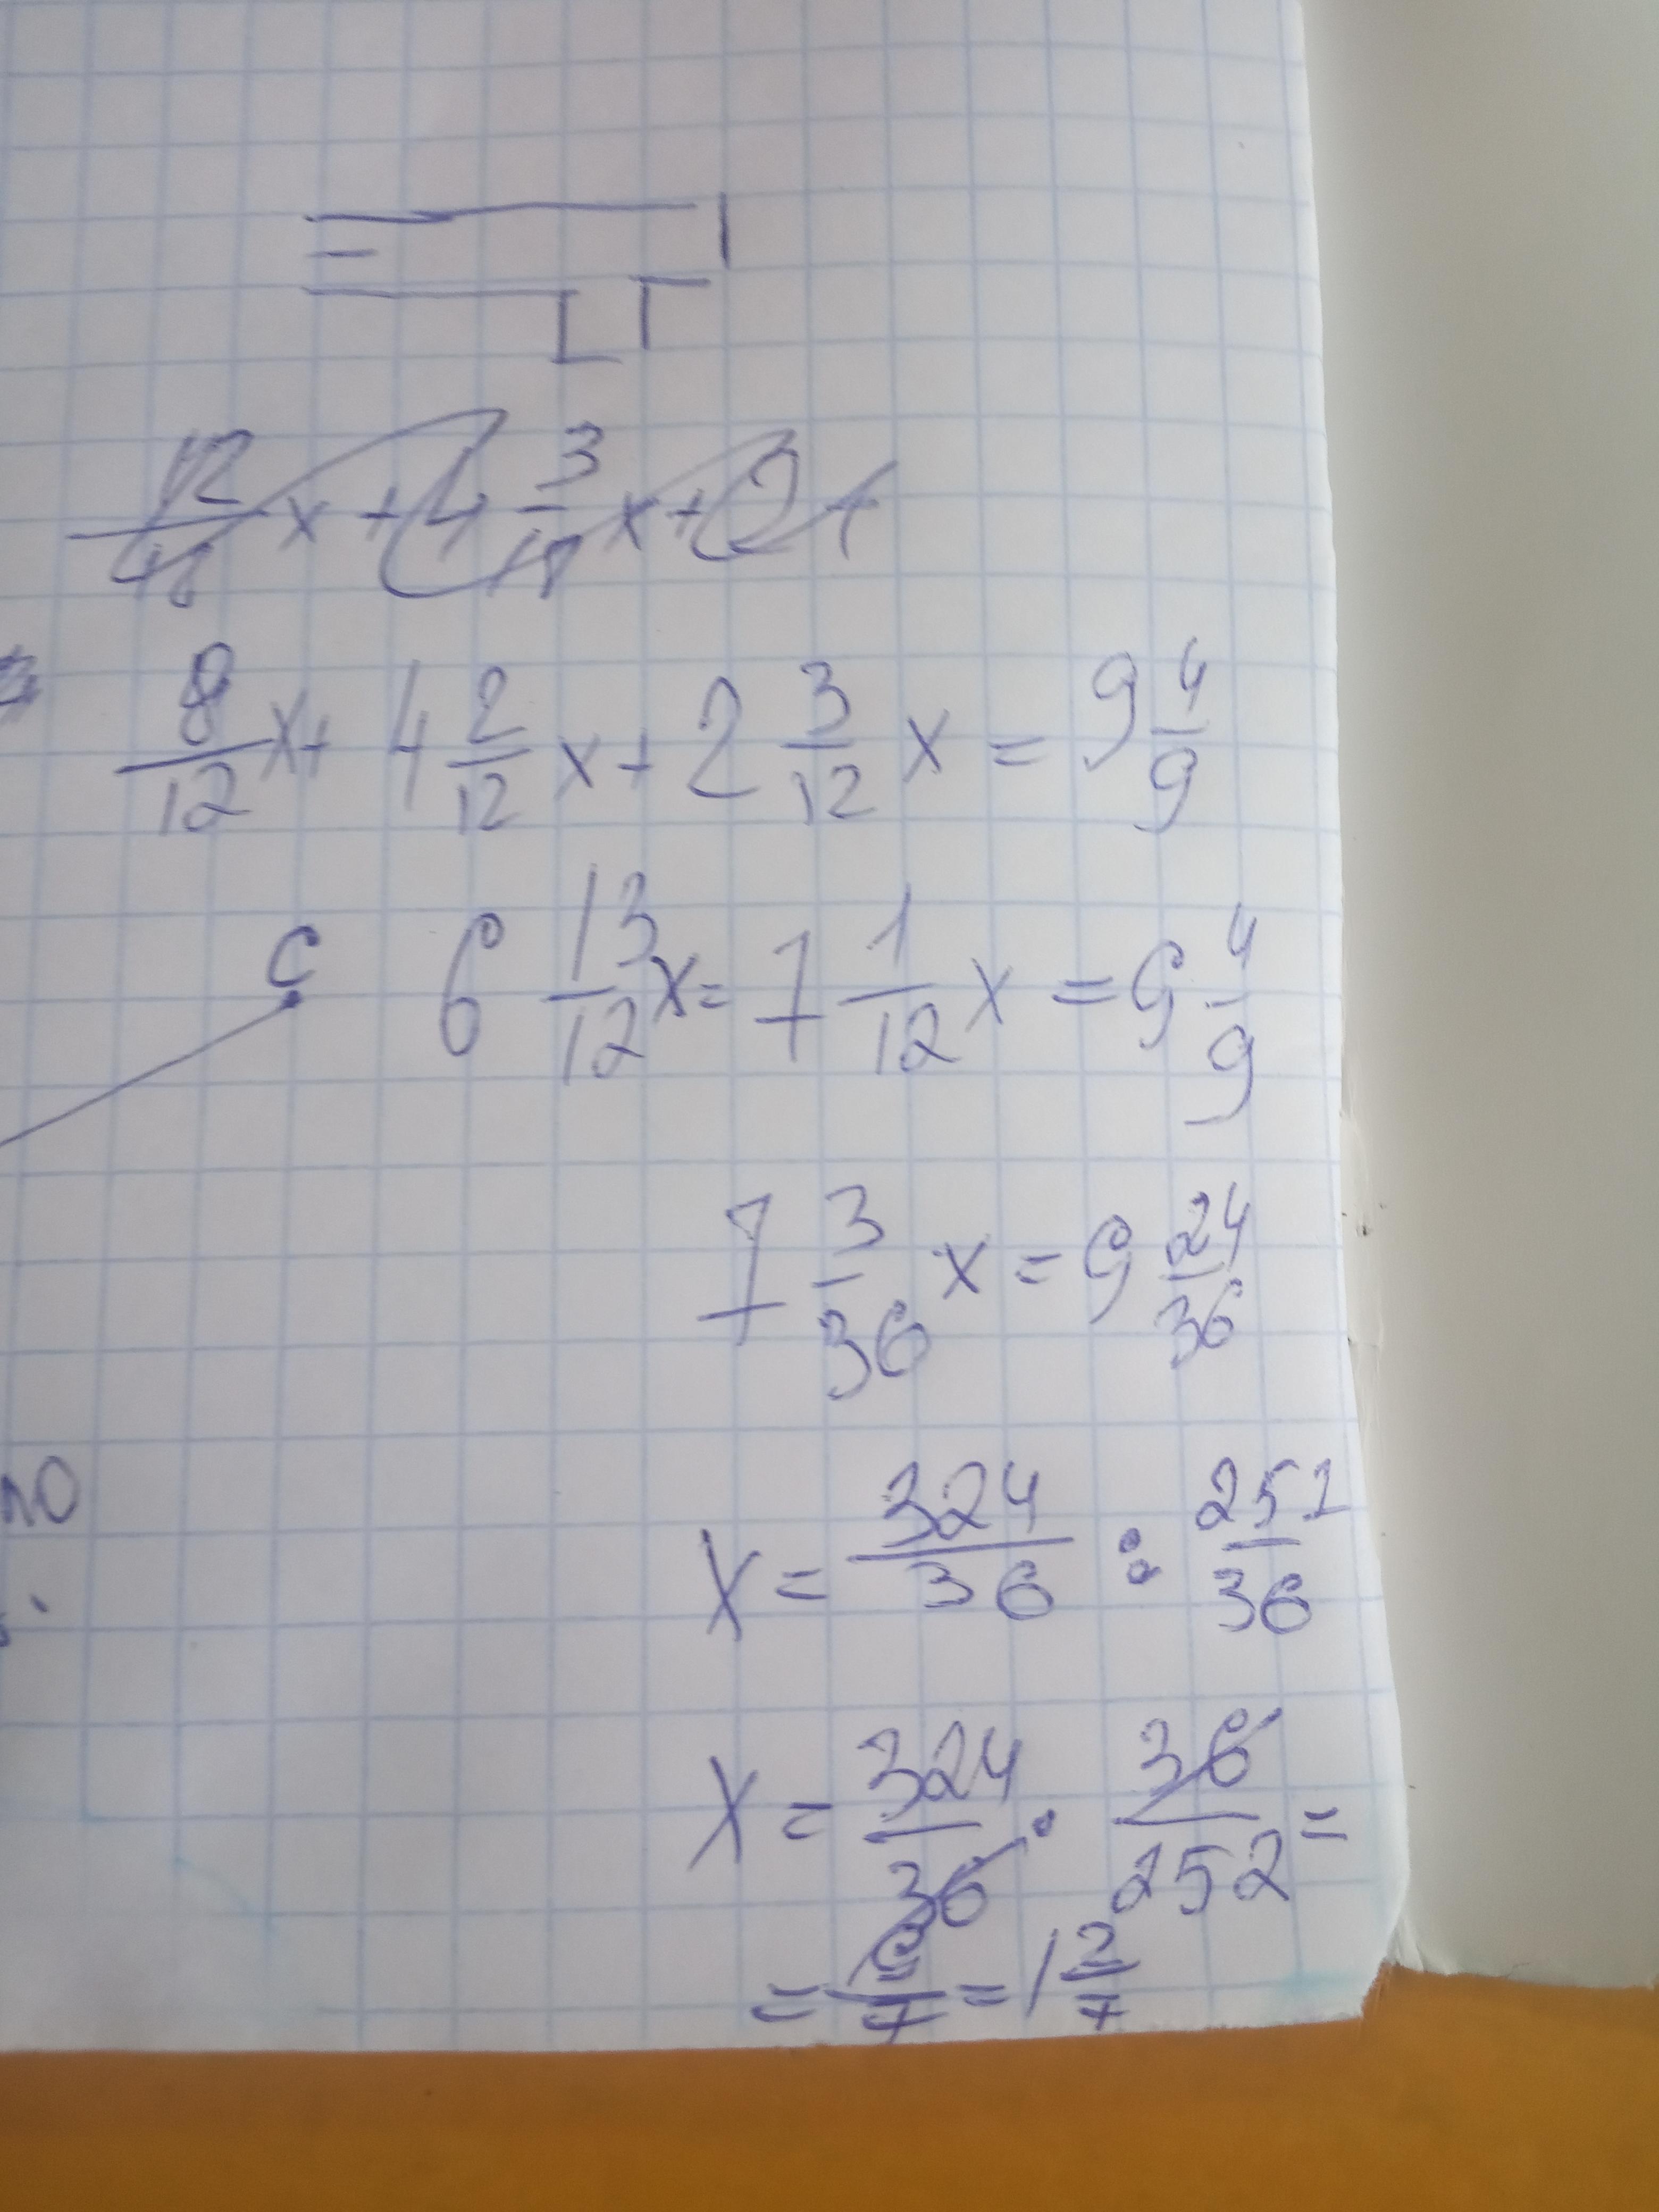 8/12 x + 4 2/12 x + 2 3/12 x = 9 4/9
C
6 13/12 x = 7 1/12 x = 9 4/9
7 3/36 x = 9 24/36
x = 324/36 : 252/36
x = 324/36 · 36/252 =
= 9/7 = 1 2/7